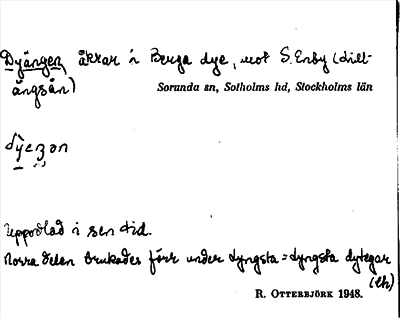 Dyängen, åkrar i Berga dye, mot S. Enby (dill-
ängsån)
Sorunda sn, Sotholms hd, Stockholms län
dyeŋən
Uppodlad i sen tid.
Norra delen brukades förr under Lyngsta = Lyngsta dytegar
R. OTTERBJÖRK 1948.